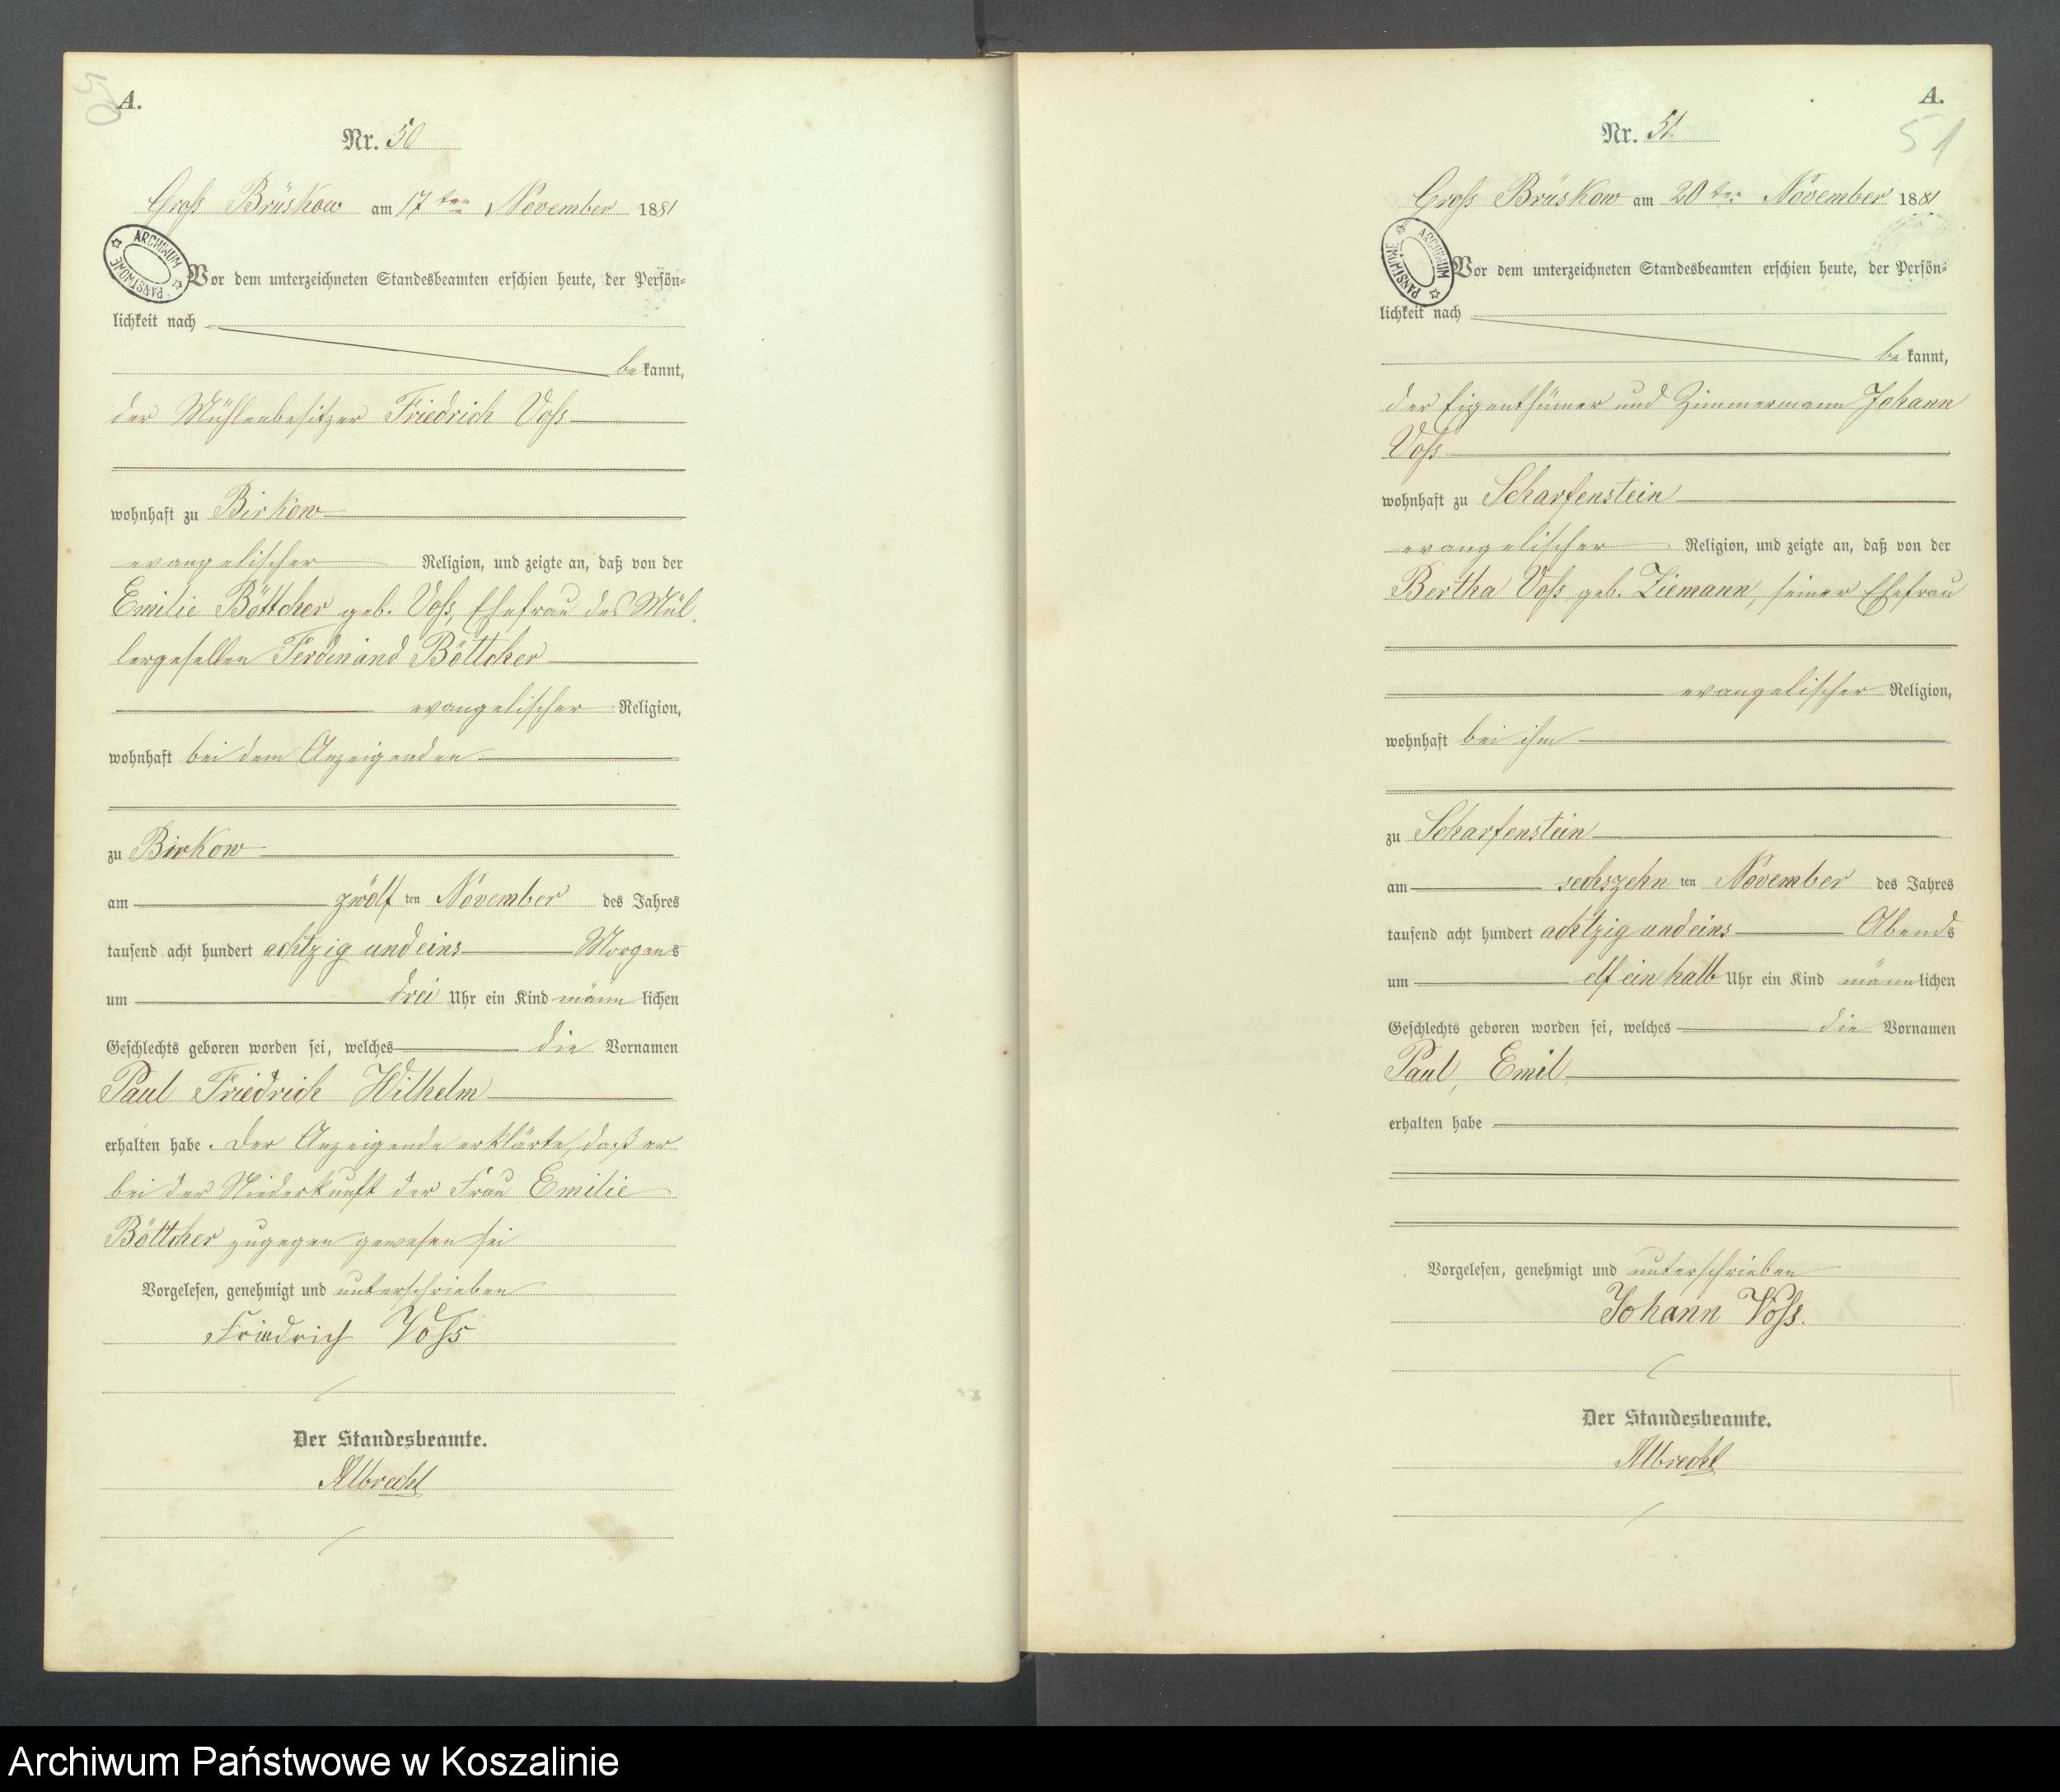 A.
50
Nr. 50
Groß Brüskow am 17ten November 1881
ARCHIWUM PAŃSTWOWE
Vor dem unterzeichneten Standesbeamten erschien heute, der Persön=
lichkeit nach
bekannt,
der Mühlenbesitzer Friedrich Voß
wohnhaft zu Birkow
evangelischer Religion, und zeigte an, daß von der
Emilie Böttcher geb. Voß, Ehefrau des Mül-
lergesellen Ferdinand Böttcher
evangelischer Religion,
wohnhaft bei dem Anzeigenden
zu Birkow
am zwölf ten November des Jahres
tausend acht hundert achtzig und eins Morgens
um drei Uhr ein Kind männlichen
Geschlechts geboren worden sei, welches die Vornamen
Paul Friedrich Wilhelm
erhalten habe. Der Anzeigende erklärte, daß er
bei der Niederkunft der Frau Emilie
Böttcher zugegen gewesen sei
Vorgelesen, genehmigt und unterschrieben
Friedrich Voß
Der Standesbeamte.
Albrecht
A.
51
Nr. 51.
Groß Brüskow am 20ten November 1881
ARCHIWUM PAŃSTWOWE
Vor dem unterzeichneten Standesbeamten erschien heute, der Persön=
lichkeit nach
bekannt,
der Eigenthümer und Zimmermann Johann
Voß
wohnhaft zu Scharfenstein
evangelischer Religion, und zeigte an, daß von der
Bertha Voß geb. Ziemann, seiner Ehefrau
evangelischer Religion,
wohnhaft bei ihm
zu Scharfenstein
am sechszehn ten November des Jahres
tausend acht hundert achtzig und eins Abends
um elf ein halb Uhr ein Kind männlichen
Geschlechts geboren worden sei, welches die Vornamen
Paul, Emil
erhalten habe
Vorgelesen, genehmigt und unterschrieben
Johann Voß.
Der Standesbeamte.
Albrecht
Archiwum Państwowe w Koszalinie